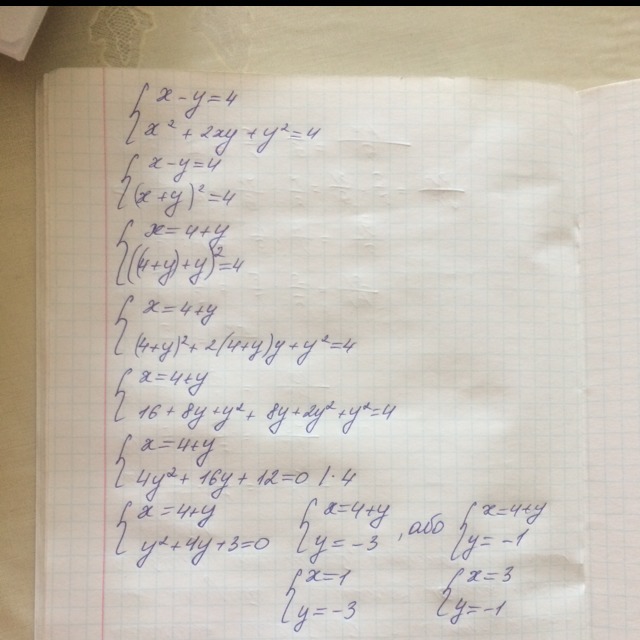 x - y = 4
x² + 2xy + y² = 4
x - y = 4
(x + y)² = 4
x = 4 + y
((4 + y) + y)² = 4
x = 4 + y
(4 + y)² + 2(4 + y)y + y² = 4
x = 4 + y
16 + 8y + y² + 8y + 2y² + y² = 4
x = 4 + y
4y² + 16y + 12 = 0 | · 4
x = 4 + y
y² + 4y + 3 = 0
x = 4 + y
y = -3
, або
x = 4 + y
y = -1
x = 1
y = -3
x = 3
y = -1